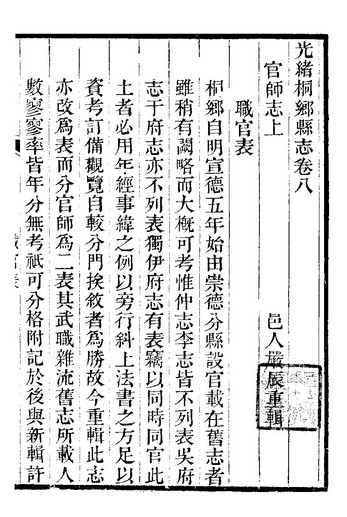 光緒桐鄉縣志卷八
官師志上
邑人嚴辰重輯
職官表
桐鄉自明宣德五年始由崇德分縣設官載在舊志者
雖稍有闕略而大槪可考惟仲志李志皆不列表吳府
志于府志亦不列表獨伊府志有表竊以同時同官此
土者必用年經事緯之例以旁行斜上法書之方足以
資考訂備觀覽自較分門挨敘者爲勝故今重輯此志
亦改爲表而分官師爲二表其武職雜流舊志所載人
數寥寥率皆年分無考祇可分格附記於後與新輯許